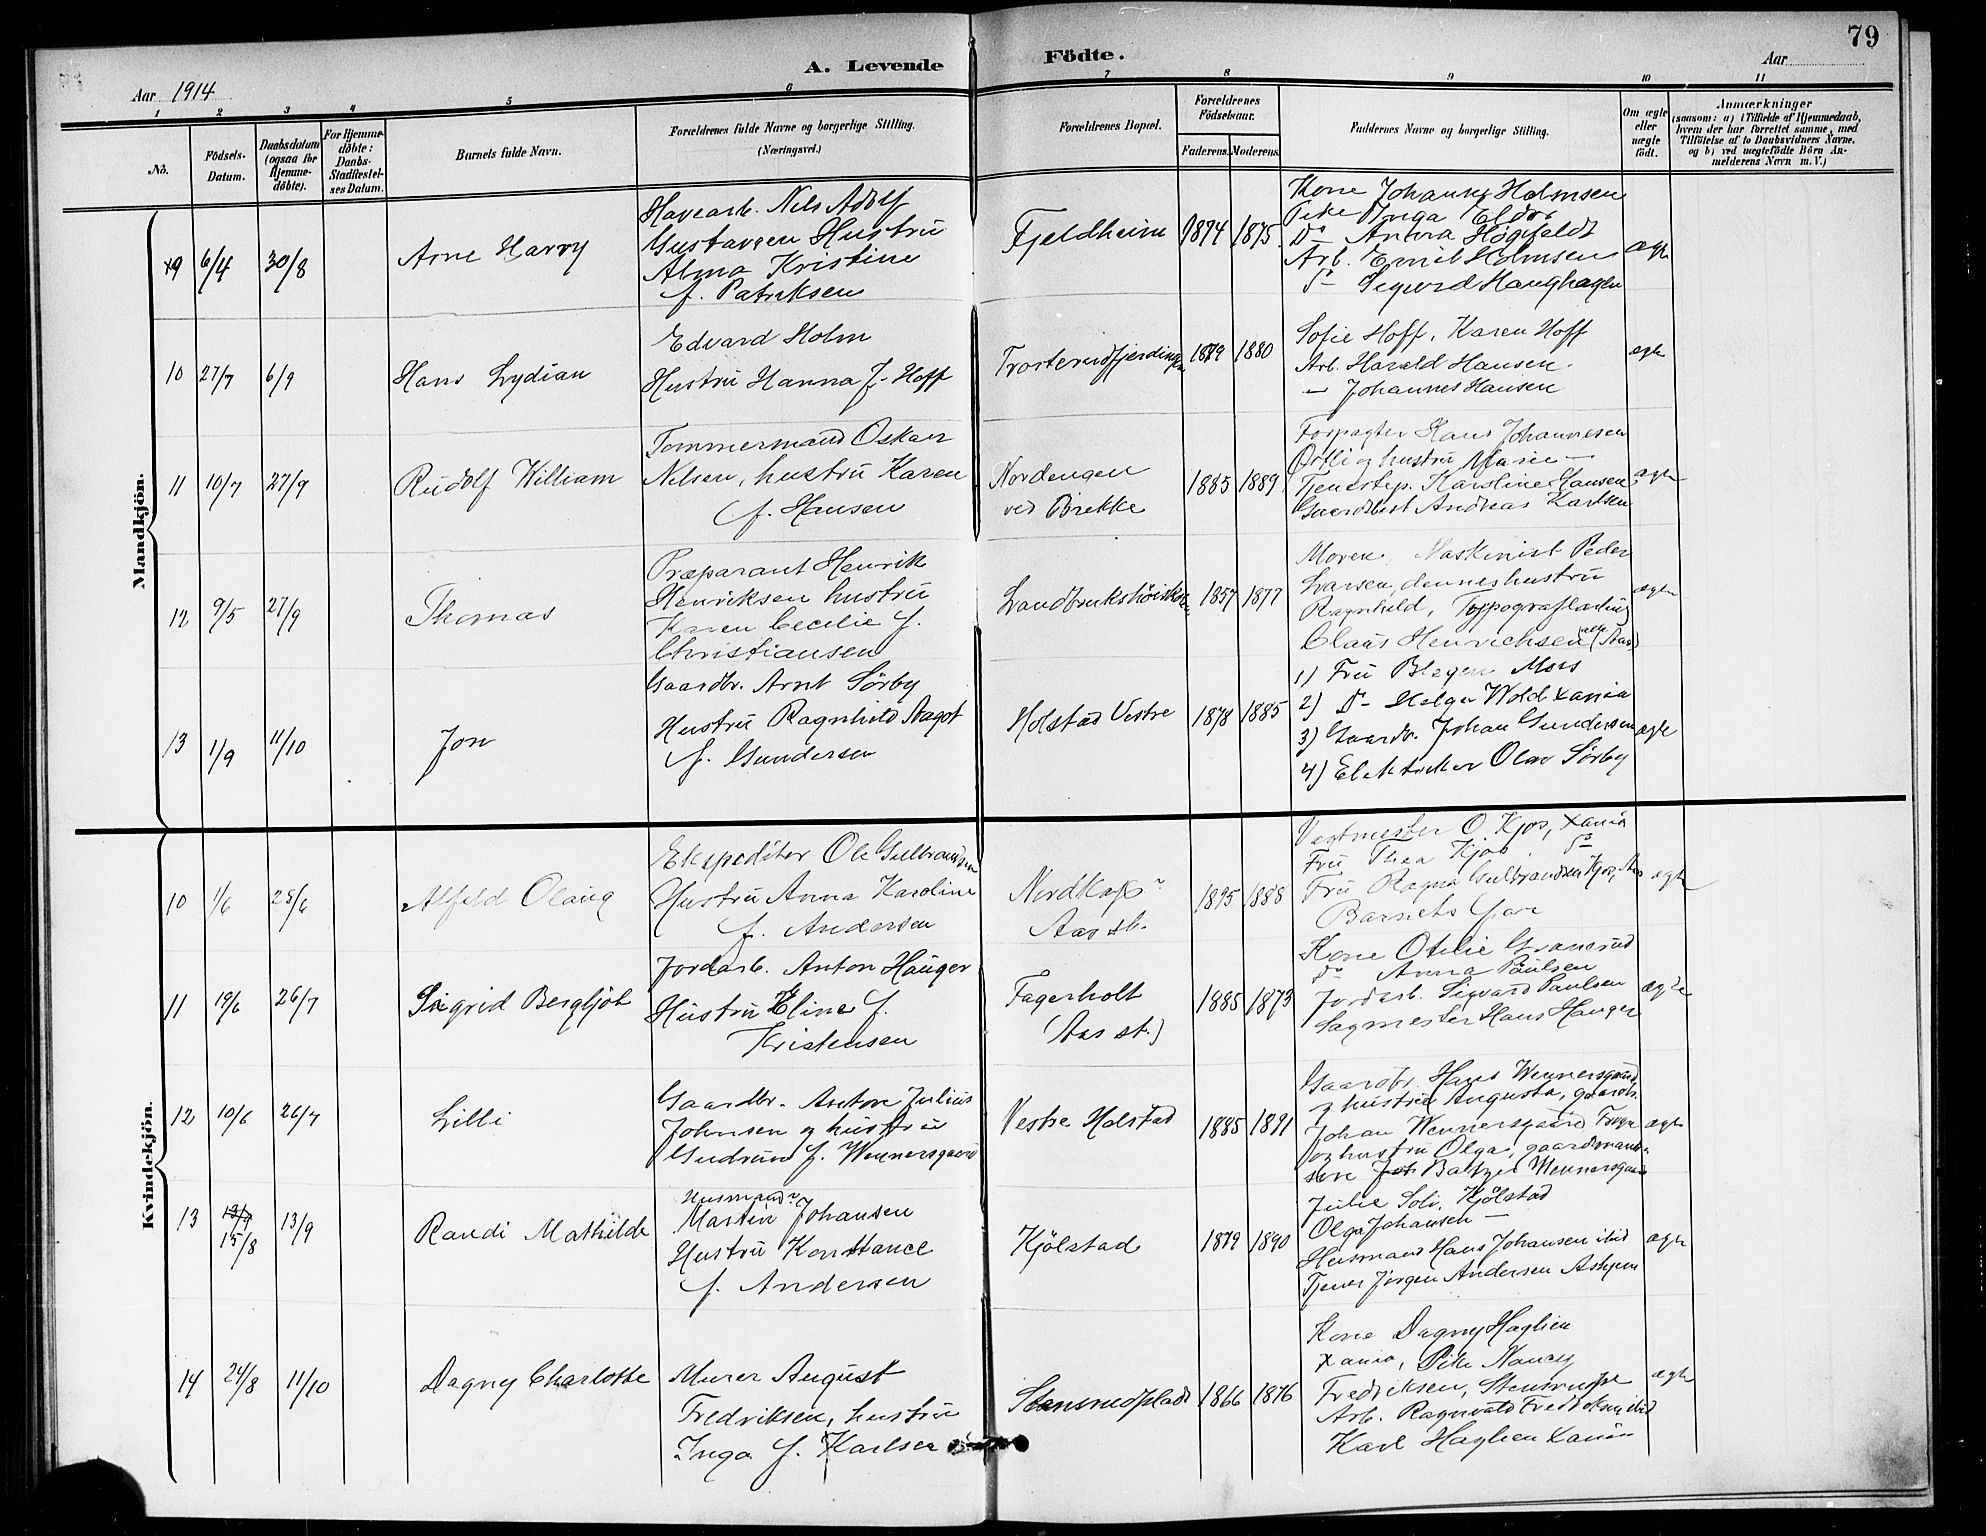 79
A. Levende Födte.
Aar 1914
Aar
1 2 3 4 5 6 7 8 9 10 11
No.
Födsels-Datum.
Daabsdatum (ogsaa for Hjemme-döbte).
For Hjemme-döbte: Daabs-Stadfæstel-ses Datum.
Barnets fulde Navn.
Forældrenes fulde Navne og borgerlige Stilling.
(Næringsvei.)
Forældrenes Bopæl.
Forældrenes Födselsaar.
Faderens. Moderens.
Faddernes Navne og borgerlige Stilling.
Om ægte eller uægte födt.
Anmærkninger
(saasom: a) i Tilfælde af Hjemmedaab, hvem der har forrettet samme, med Tilföielse af to Daabsvidners Navne, og b) ved uægtefödte Börn An-melderens Nevn m. V.)
Mandkjön.
9 6/4 30/8
Arne Harry
Havearb. Nils Adolf
Gustavsen Hustru
Alma Kristine
f. Patriksen
Fjeldheim 1874 1875
Kone Johanne Holmsen
Pike Inga
Do Anna Høgfeldt
Arb. Emil Holmsen
Do Sigurd Haughagen
ægte
10 27/7 6/9
Hans Lydian
Edvard Holm
Hustru Hanna f. Hoff
Trosterudfjerdingen 1879 1880
Sofie Hoff, Karen Hoff
Arb. Harald Hansen
— Johannes Hansen
ægte
11 10/7 27/9
Rudolf William
Tømmermand Oskar
Nilsen, hustru Karen
f. Hansen
Nordengen
ved Brekke
1885 1889
Forpagter Hans Johannesen
og hustru Marie —
Tjenestep. Karoline Hansen
Gaardbest Andreas Karlsen
ægte
12 9/5 27/9
Thomas
Præparant Henrik
Henriksen hustru
Karen Cecilie f.
Christiansen
Landbrukshøiskolen 1857 1877
Moren, Maskinist Peder
Larsen, dennes hustru
Ragnhild, Typograflærling
Claus Henrichsen (alle Aas)
ægte
13 1/9 11/10
Jon
Gaardbr. Arnt Sörby
Hustru Ragnhild Aagot
f. Gundersen
Holstad Vestre 1878 1885
1) Fru Moss
2) Do Helga Wold Xania
3) Gaardbr. Johan Gundersen
4) Elektriker Olav Sörby
ægte
Kvindekjön.
10 1/6 28/6
Alfeld Olaug
Ekspeditør Ole Gulbrandsen
Hustru Anna Karoline
f. Andersen
Nordkap
Aas st.
1895 1888
Vegtmester O. Kjos, Xania
Fru Thea Kjos Do
Fru Ragna Gulbrandsen Kjos, Aas
Barnets Far
ægte
11 19/6 26/7
Sigrid Bergljot
Jordarb. Anton Hauger
Hustru Eline f.
Kristensen
Fagerholt
(Aas st.)
1885 1873
Kone Otilie Granerud
Do Anna Paulsen
Jordarb. Sigvard Paulsen
Sagmester Hans Hauger
ægte
12 10/6 26/7
Lilli
Gaardbr. Anton Julius
Johnsen og hustru
Gudrun f. Wennersgaard
Vestre Holstad 1885 1891
Gaardbr. Hans Wennersgaard
og hustru Augusta, gaardbr.
Johan Wennersgaard
og hustru Olga, gaardmand-
søn Baltzer Wennersgaard
ægte
13 13/9 15/8 13/9
Randi Mathilde
Husmand
Martin Johansen
Hustru Konstance
f. Andersen
Kjölstad 1879 1890
Julie Kjölstad
Olga Johansen —
Husmand Hans Johansen ibid
Tjener Jørgen Andersen Askjem
ægte
14 24/8 11/10
Dagny Charlotte
Murer August
Fredriksen, hustru
Inga f. Karlsen
Stensrudplads 1866 1876
Kone Dagny Haglien
Xania, Pike Nancy
Fredriksen, Stensrudpl
Arb. Ragnvald Fredriksen, ibid
Karl Haglien Xania
ægte